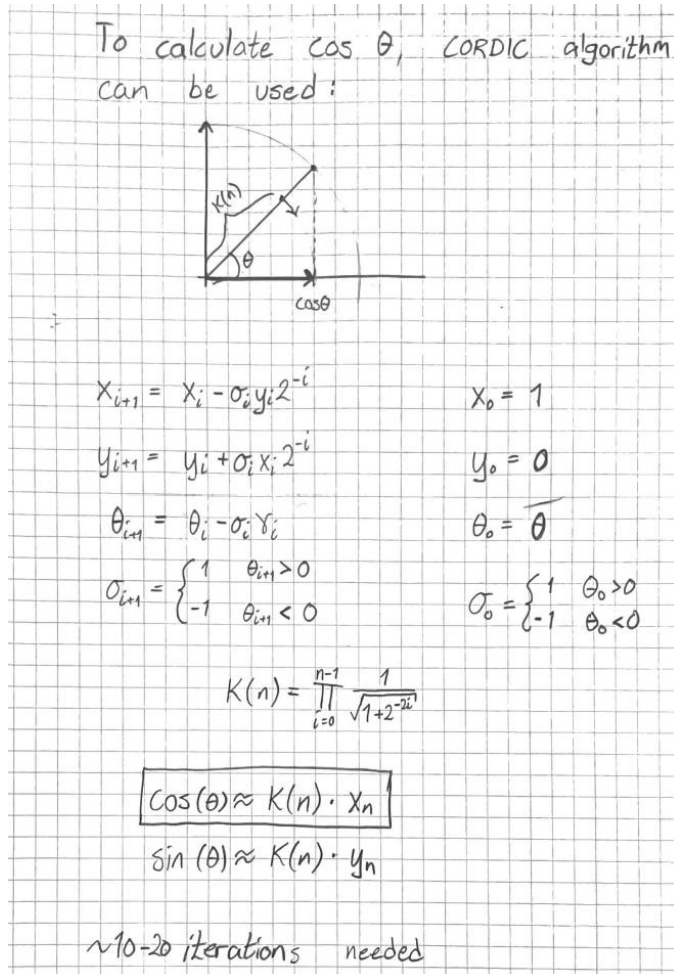 To calculate cos θ, CORDIC algorithm
can be used:
K(n)
θ
cosθ
x_{i+1} = x_i - σ_i y_i 2^{-i}    x_0 = 1
y_{i+1} = y_i + σ_i x_i 2^{-i}    y_0 = 0
θ_{i+1} = θ_i - σ_i γ_i    θ_0 = θ̅
σ_{i+1} = { 1  θ_{i+1} > 0    σ_0 = { 1  θ_0 > 0
-1  θ_{i+1} < 0    -1  θ_0 < 0
K(n) = ∏_{i=0}^{n-1} 1/√(1+2^{-2i})
cos(θ) ≈ K(n) · x_n
sin(θ) ≈ K(n) · y_n
~10-20 iterations needed